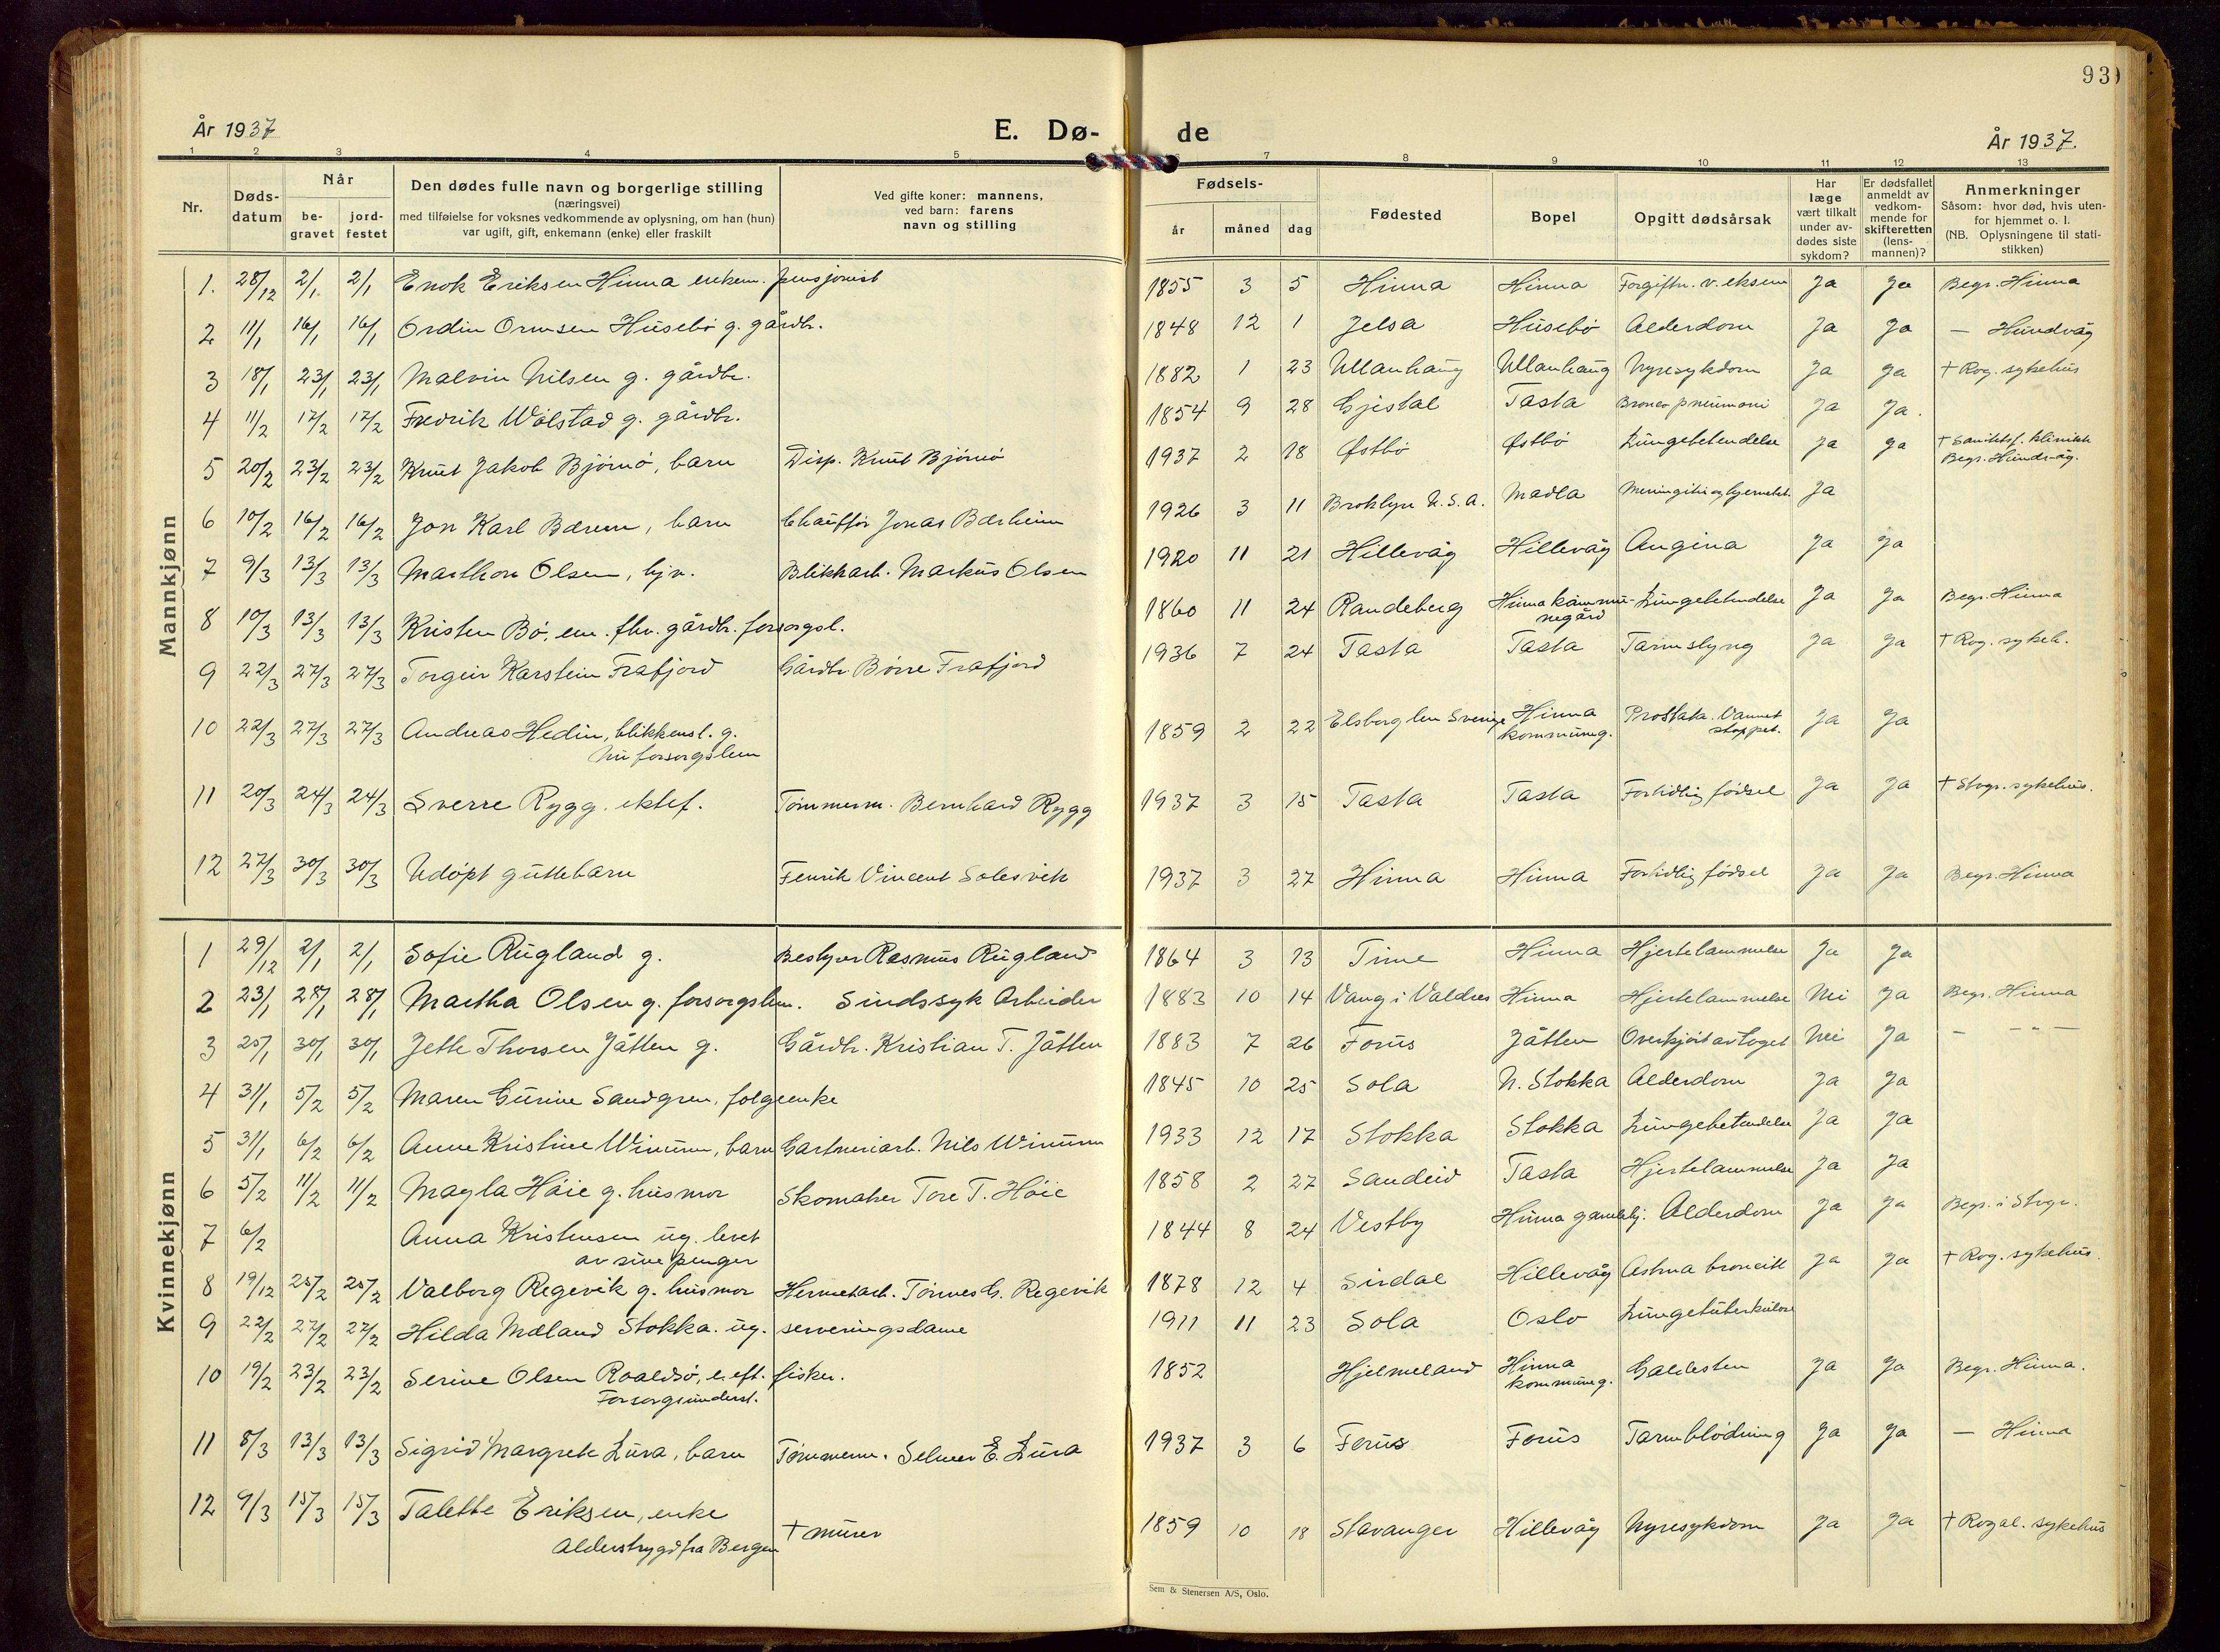 93
År 1937
E. Dø-
de
År 1937.
1 2 3 4 5 6 7 8 9 10 11 12 13
Nr.
Døds-
datum
Når
be-
gravet
jord-
festet
Den dødes fulle navn og borgerlige stilling
(næringsvei)
med tilføielse for voksnes vedkommende av oplysning, om han (hun)
var ugift, gift, enkemann (enke) eller fraskilt
Ved gifte koner: mannens,
ved barn: farens
navn og stilling
Fødsels-
år måned dag
Fødested
Bopel
Opgitt dødsårsak
Har
læge
vært tilkalt
under av-
dødes siste
sykdom?
Er dødsfallet
anmeldt av
vedkom-
mende for
skifteretten
(lens-
mannen)?
Anmerkninger
Såsom: hvor død, hvis uten-
for hjemmet o. l.
(NB. Oplysningene til stati-
stikken)
Mannkjønn
1. 28/12 2/1 2/1 Enok Eriksen Hinna enkem. pensjonist 1855 3 5 Hinna Hinna Forgiftn. v. eksem Ja Ja Begr. Hinna
2 11/1 16/1 16/1 Ordin Ormsen Husebø g. gårdbr. 1848 12 1 Jelsa Husebø Alderdom Ja Ja — Hundvåg
3 18/1 23/1 23/1 Malvin Nilsen g. gårdbr. 1882 1 23 Ullanhaug Ullanhaug Nyresykdom Ja Ja † Rog. sykehus
4 11/2 17/2 17/2 Fredrik Wølstad g. gårdbr. 1854 9 28 Gjestal Tasta Bronco pneumoni Ja Ja.
5 20/2 23/2 23/2 Knut Jakob Bjørnø, barn Disp. Knut Bjørnø 1937 2 18 Østbø Østbø Lungebetendelse Ja Ja † Sanitetsf. klinikk
Begr. Hundvåg.
6 10/2 16/2 16/2 Jon Karl Bærem, barn Chauffør Jonas Bærheim 1926 3 11 Broklyn U.S.A. Madla Meningitis og Ja
7 9/3 13/3 13/3 Marthon Olsen, hjv. Blikkarb. Markus Olsen 1920 11 21 Hillevåg Hillevåg Angina Ja Ja
8 10/3 13/3 13/3 Kristen Bø, em. fhv. gårdbr. forsorgsl. 1860 11 24 Randeberg Hinna kommu- Lungebetendelse Ja Ja Begr. Hinna
negård
9 22/3 27/3 27/3 Torgeir Karstein Frafjord Gårdbr. Børre Frafjord 1936 7 24 Tasta Tasta Tarmslyng Ja Ja † Rog. sykeh.
10 22/3 27/3 27/3 Andreas Hedin, blikkensl. g. 1859 2 22 Elsborg len Sverige Hinna Prostata. Vannet Ja Ja
Nu forsorgslem kommuneg. stoppet.
11 20/3 24/3 24/3 Sverre Rygg, ektef. Tømmerm. Bernhard Rygg 1937 3 15 Tasta Tasta Fortidlig fødsel Ja Ja † Stvgr. sykehus.
12 27/3 30/3 30/3 Udøpt guttebarn Fenrik Vincent Solesvik 1937 3 27 Hinna Hinna Fortidlig fødsel Ja Ja Begr. Hinna
Kvinnekjønn
1 29/12 2/1 2/1 Sofie Rugland g. Bestyrer Rasmus Rugland 1864 3 13 Time Hinna Hjertelammelse Ja Ja
2 23/1 28/1 28/1 Martha Olsen g. forsorgslem. Sindssyk Arbeider 1883 10 14 Vang i Valdres Hinna Hjertelammelse Nei Ja Begr. Hinna
3 25/1 30/1 30/1 Jette Thorsen Jåtten g. Gårdbr. Kristian T. Jåtten 1883 7 26 Forus Jåtten Overkjørt av toget Nei Ja — -"-
4 31/1 5/2 5/2 Maren Gurine Sandgren, følgeenke 1845 10 25 Sola N. Stokka Alderdom Ja Ja
5 31/1 6/2 6/2 Anne Kristine Winum, barn Gartneriarb. Nils Winum 1933 12 17 Stokka Stokka Lungebetendelse Ja Ja
6 5/2 11/2 11/2 Magla Høie g. husmor Skomaker Tore T. Høie 1858 2 27 Sandeid Tasta Hjertelammelse Ja Ja
7 6/2 Anna Kristensen ug. levet 1844 8 24 Vestby Hinna gamlehj. Alderdom Ja Ja Begr. i Stvgr.
av sine penger
8 19/12 25/2 25/2 Valborg Regevik g. husmor Hermetarb. Tønnes G. Regevik 1878 12 4 Sirdal Hillevåg Astma broncitt Ja Ja † Rog. sykehus.
9 22/2 27/2 27/2 Hilda Mæland Stokka. ug. serveringsdame 1911 11 23 Sola Oslo Lungetuberkulose
10 19/2 23/2 23/2 Serine Olsen Roaldsø, e. eft. fisker. 1852 Hjelmeland Hinna Galdesten Ja Ja Begr. Hinna.
Forsorgsunderst. kommuneg.
11 8/3 13/3 13/3 Sigrid Margrete Lura, barn Tømmerm. Selmer E. Lura 1937 3 6 Forus Forus Tarmblødning Ja Ja — Hinna
12 9/3 15/3 15/3 Talette Eriksen, enke † murer 1859 10 18 Stavanger Hillevåg Nyresykdom Ja Ja † Rogal. sykehus
Alderstrygd fra Bergen
Sem & Stenersen A/S, Oslo.